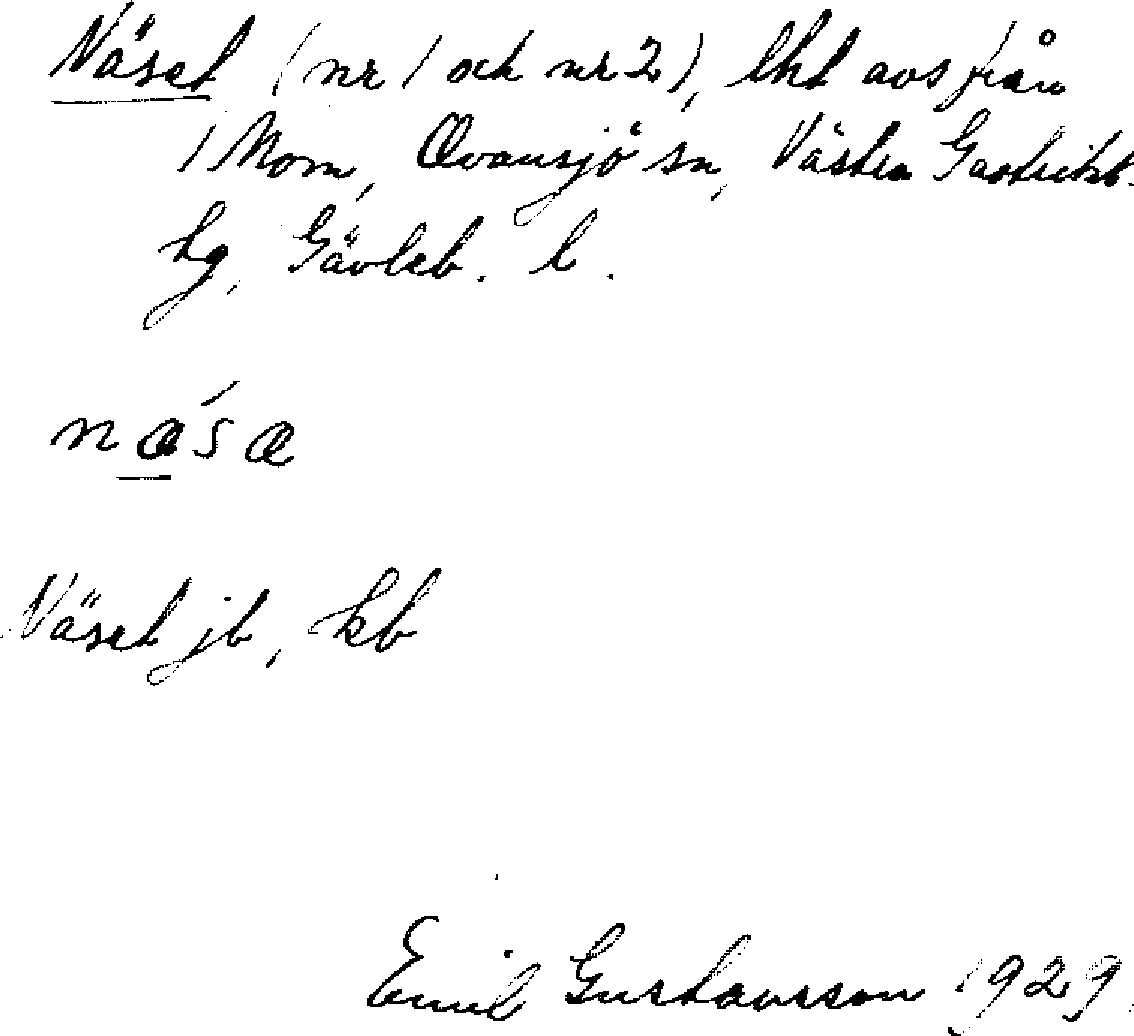 Näset (nr 1 och nr 2), lht avs från
1 Mom, Ovansjö sn, Västra Gästrikl.
hg, Gävleb. l.
nǽ̲sæ
Näset jb, kb
Emil Gustavsson 1929.